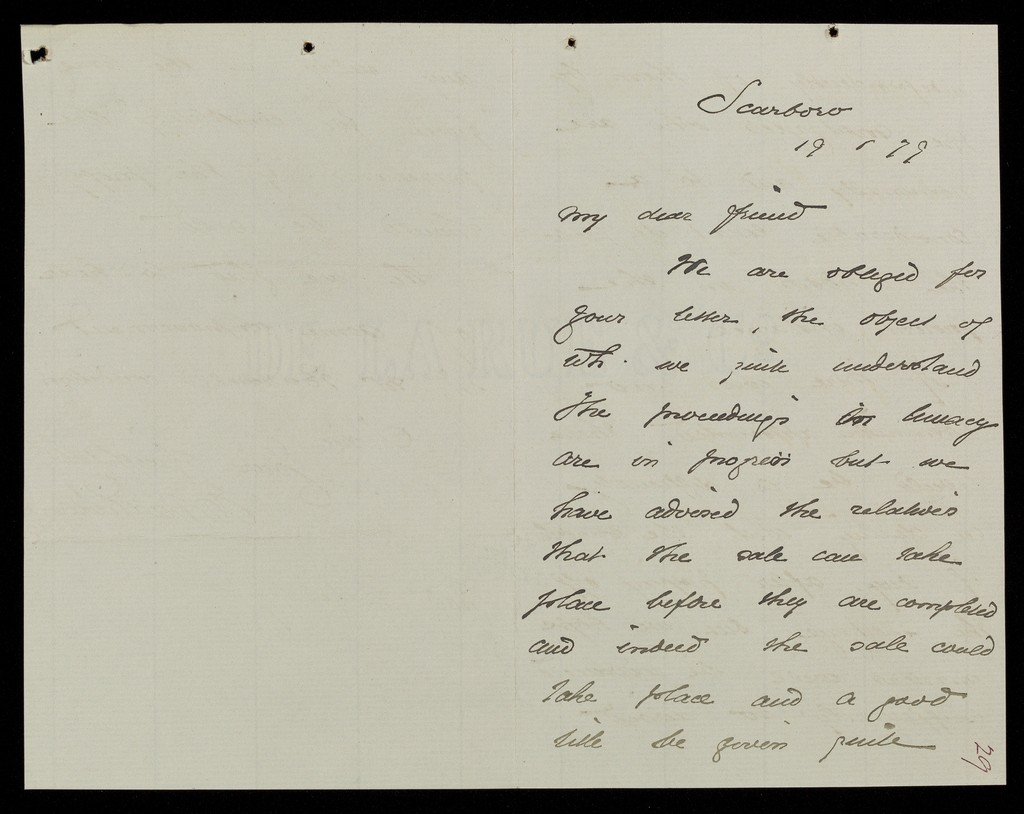 Scarboro
19 1 79
My dear friend
We are obliged for
your letter, the object of
wh. we quite understand
The proceedings in lunacy
are in progress but we
have advised the relatives
that the sale can take
place before they are completed
and indeed the sale could
take place and a good
title be given quite
29